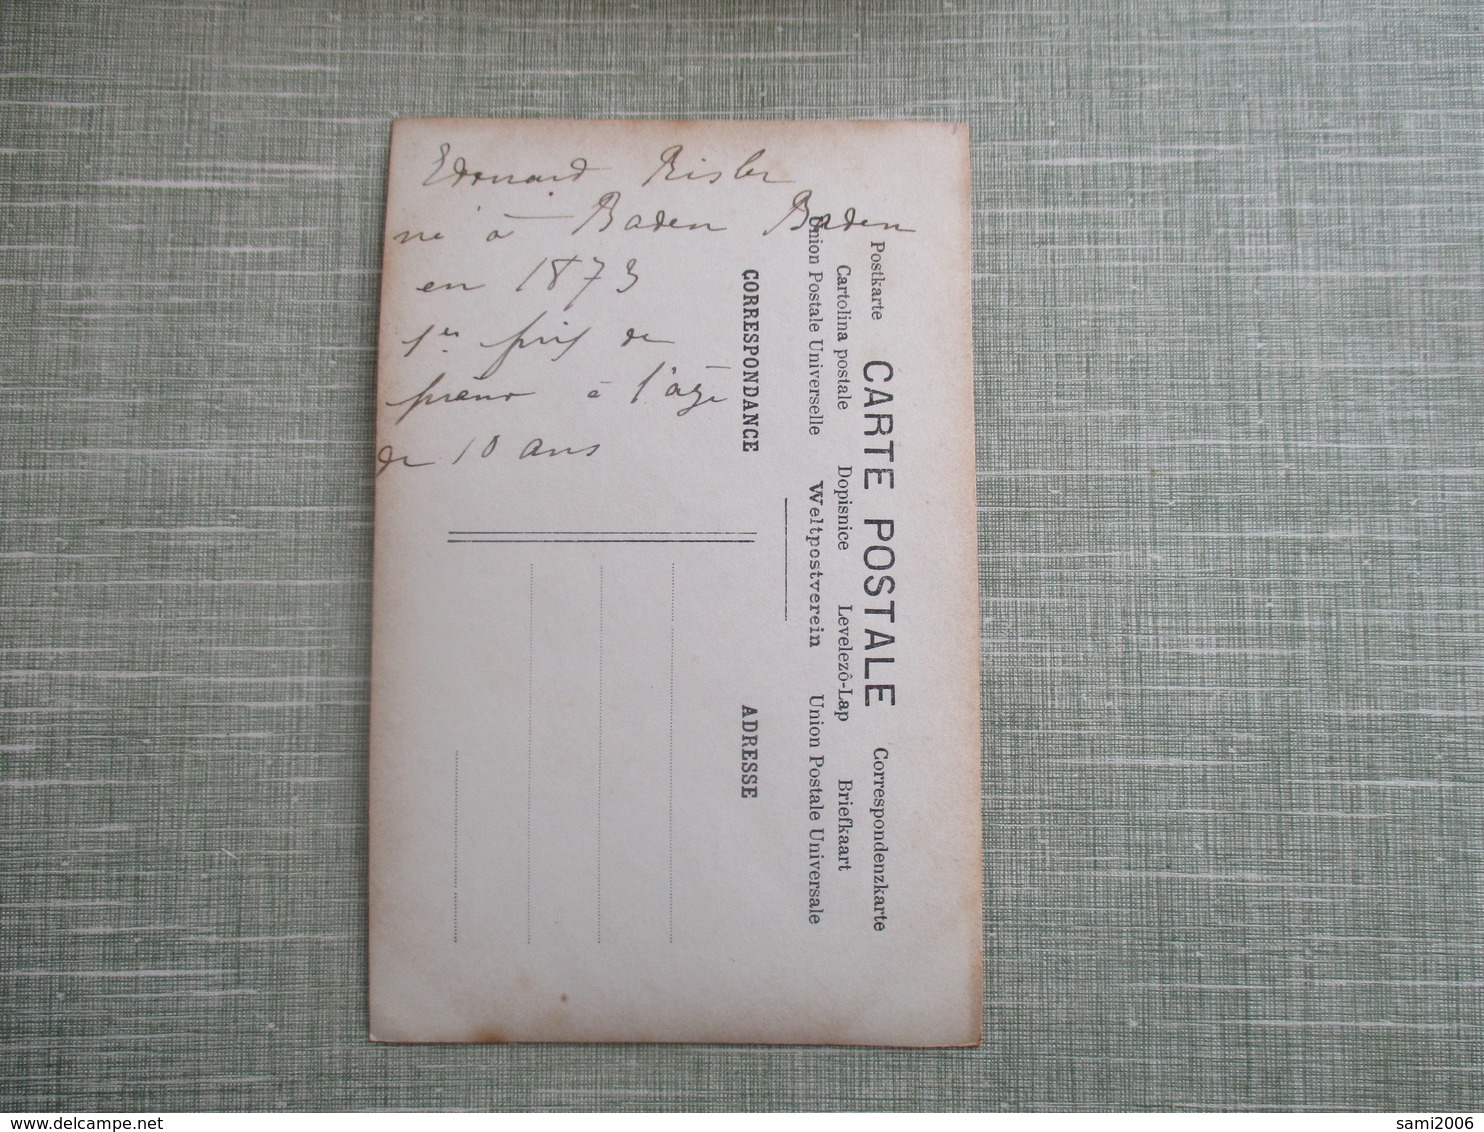 Edouard Risler
né à Baden Baden
en 1873
1er prix de
piano à l'âge
de 10 ans
Postkarte CARTE POSTALE Correspondenzkarte
Cartolina postale Dopisnice Levelezô-Lap Briefkaart
Union Postale Universelle Weltpostverein Union Postale Universale
CORRESPONDANCE ADRESSE
sami2006
www.delcampe.net